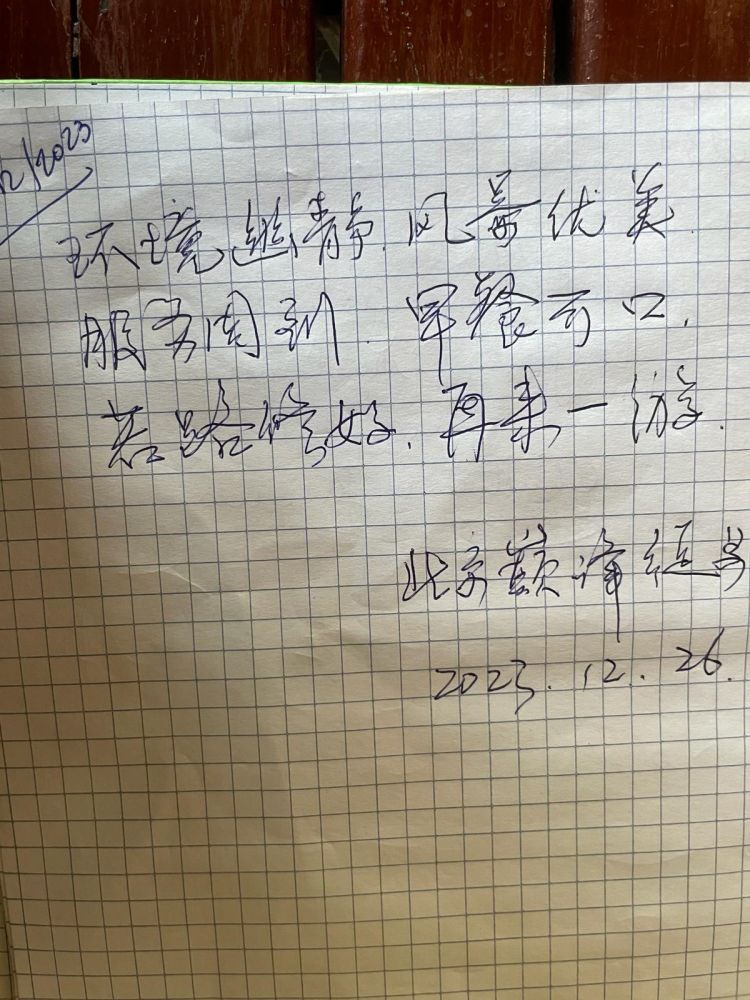 12/2023
环境幽静.风景优美.
服务周到.早餐可口.
若路修好.再来一游.
北京
2023.12.26.